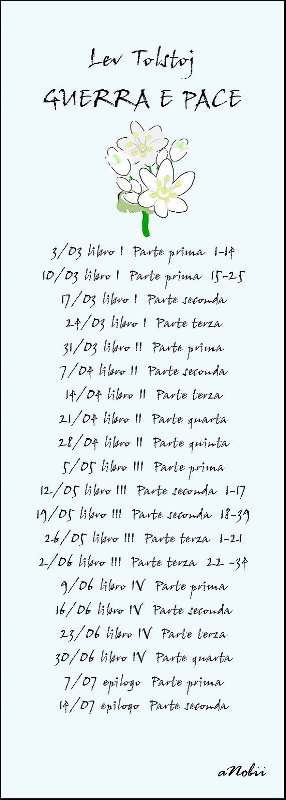 Lev Tolstoj
GUERRA E PACE
3/03 libro I Parte prima 1-14
10/03 libro I Parte prima 15-25
17/03 libro I Parte seconda
24/03 libro I Parte terza
31/03 libro II Parte prima
7/04 libro II Parte seconda
14/04 libro II Parte terza
21/04 libro II Parte quarta
28/04 libro II Parte quinta
5/05 libro III Parte prima
12/05 libro III Parte seconda 1-17
19/05 libro III Parte seconda 18-39
26/05 libro III Parte terza 1-21
2/06 libro III Parte terza 22 -34
9/06 libro IV Parte prima
16/06 libro IV Parte seconda
23/06 libro IV Parte terza
30/06 libro IV Parte quarta
7/07 epilogo Parte prima
14/07 epilogo Parte seconda
aNobii